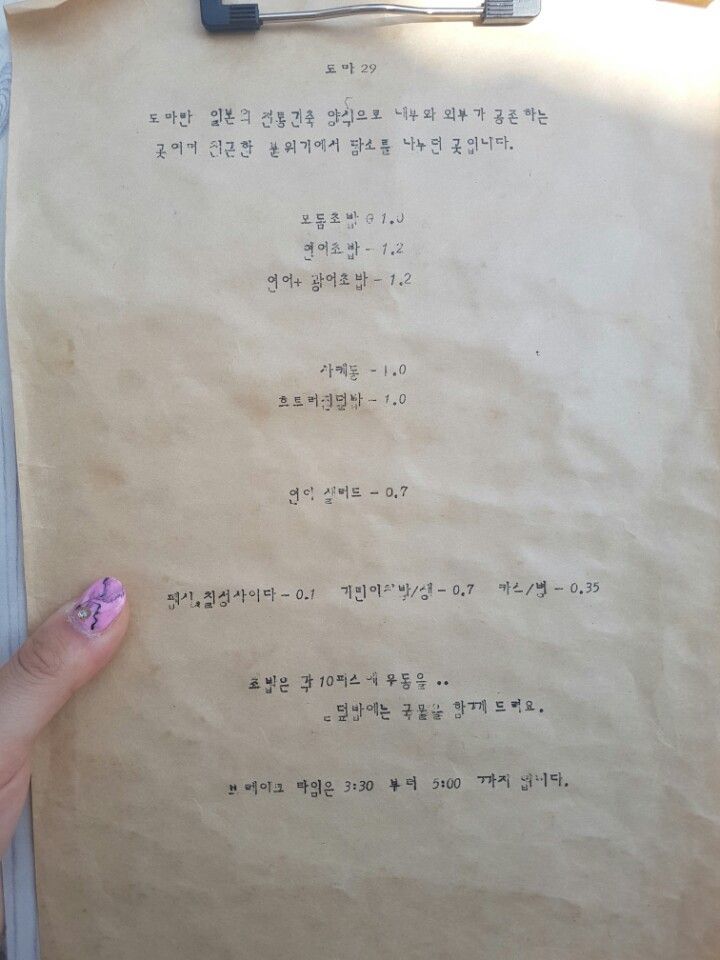 도마 29
도마란 일본의 전통건축 양식으로 내부와 외부가 공존하는
곳이며 친근한 분위기에서 담소를 나누던 곳입니다.
모둠초밥 - 1.0
연어초밥 - 1.2
연어+ 광어초밥 - 1.2
사케동 - 1.0
흐트러진덮밥 - 1.0
연어 샐러드 - 0.7
펩시,칠성사이다 - 0.1 기린이찌방/생 - 0.7 카스/병 - 0.35
초밥은 각 10피스에 우동을 ..
덮밥에는 국물을 함께 드려요.
브레이크 타임은 3:30 부터 5:00 까지 입니다.